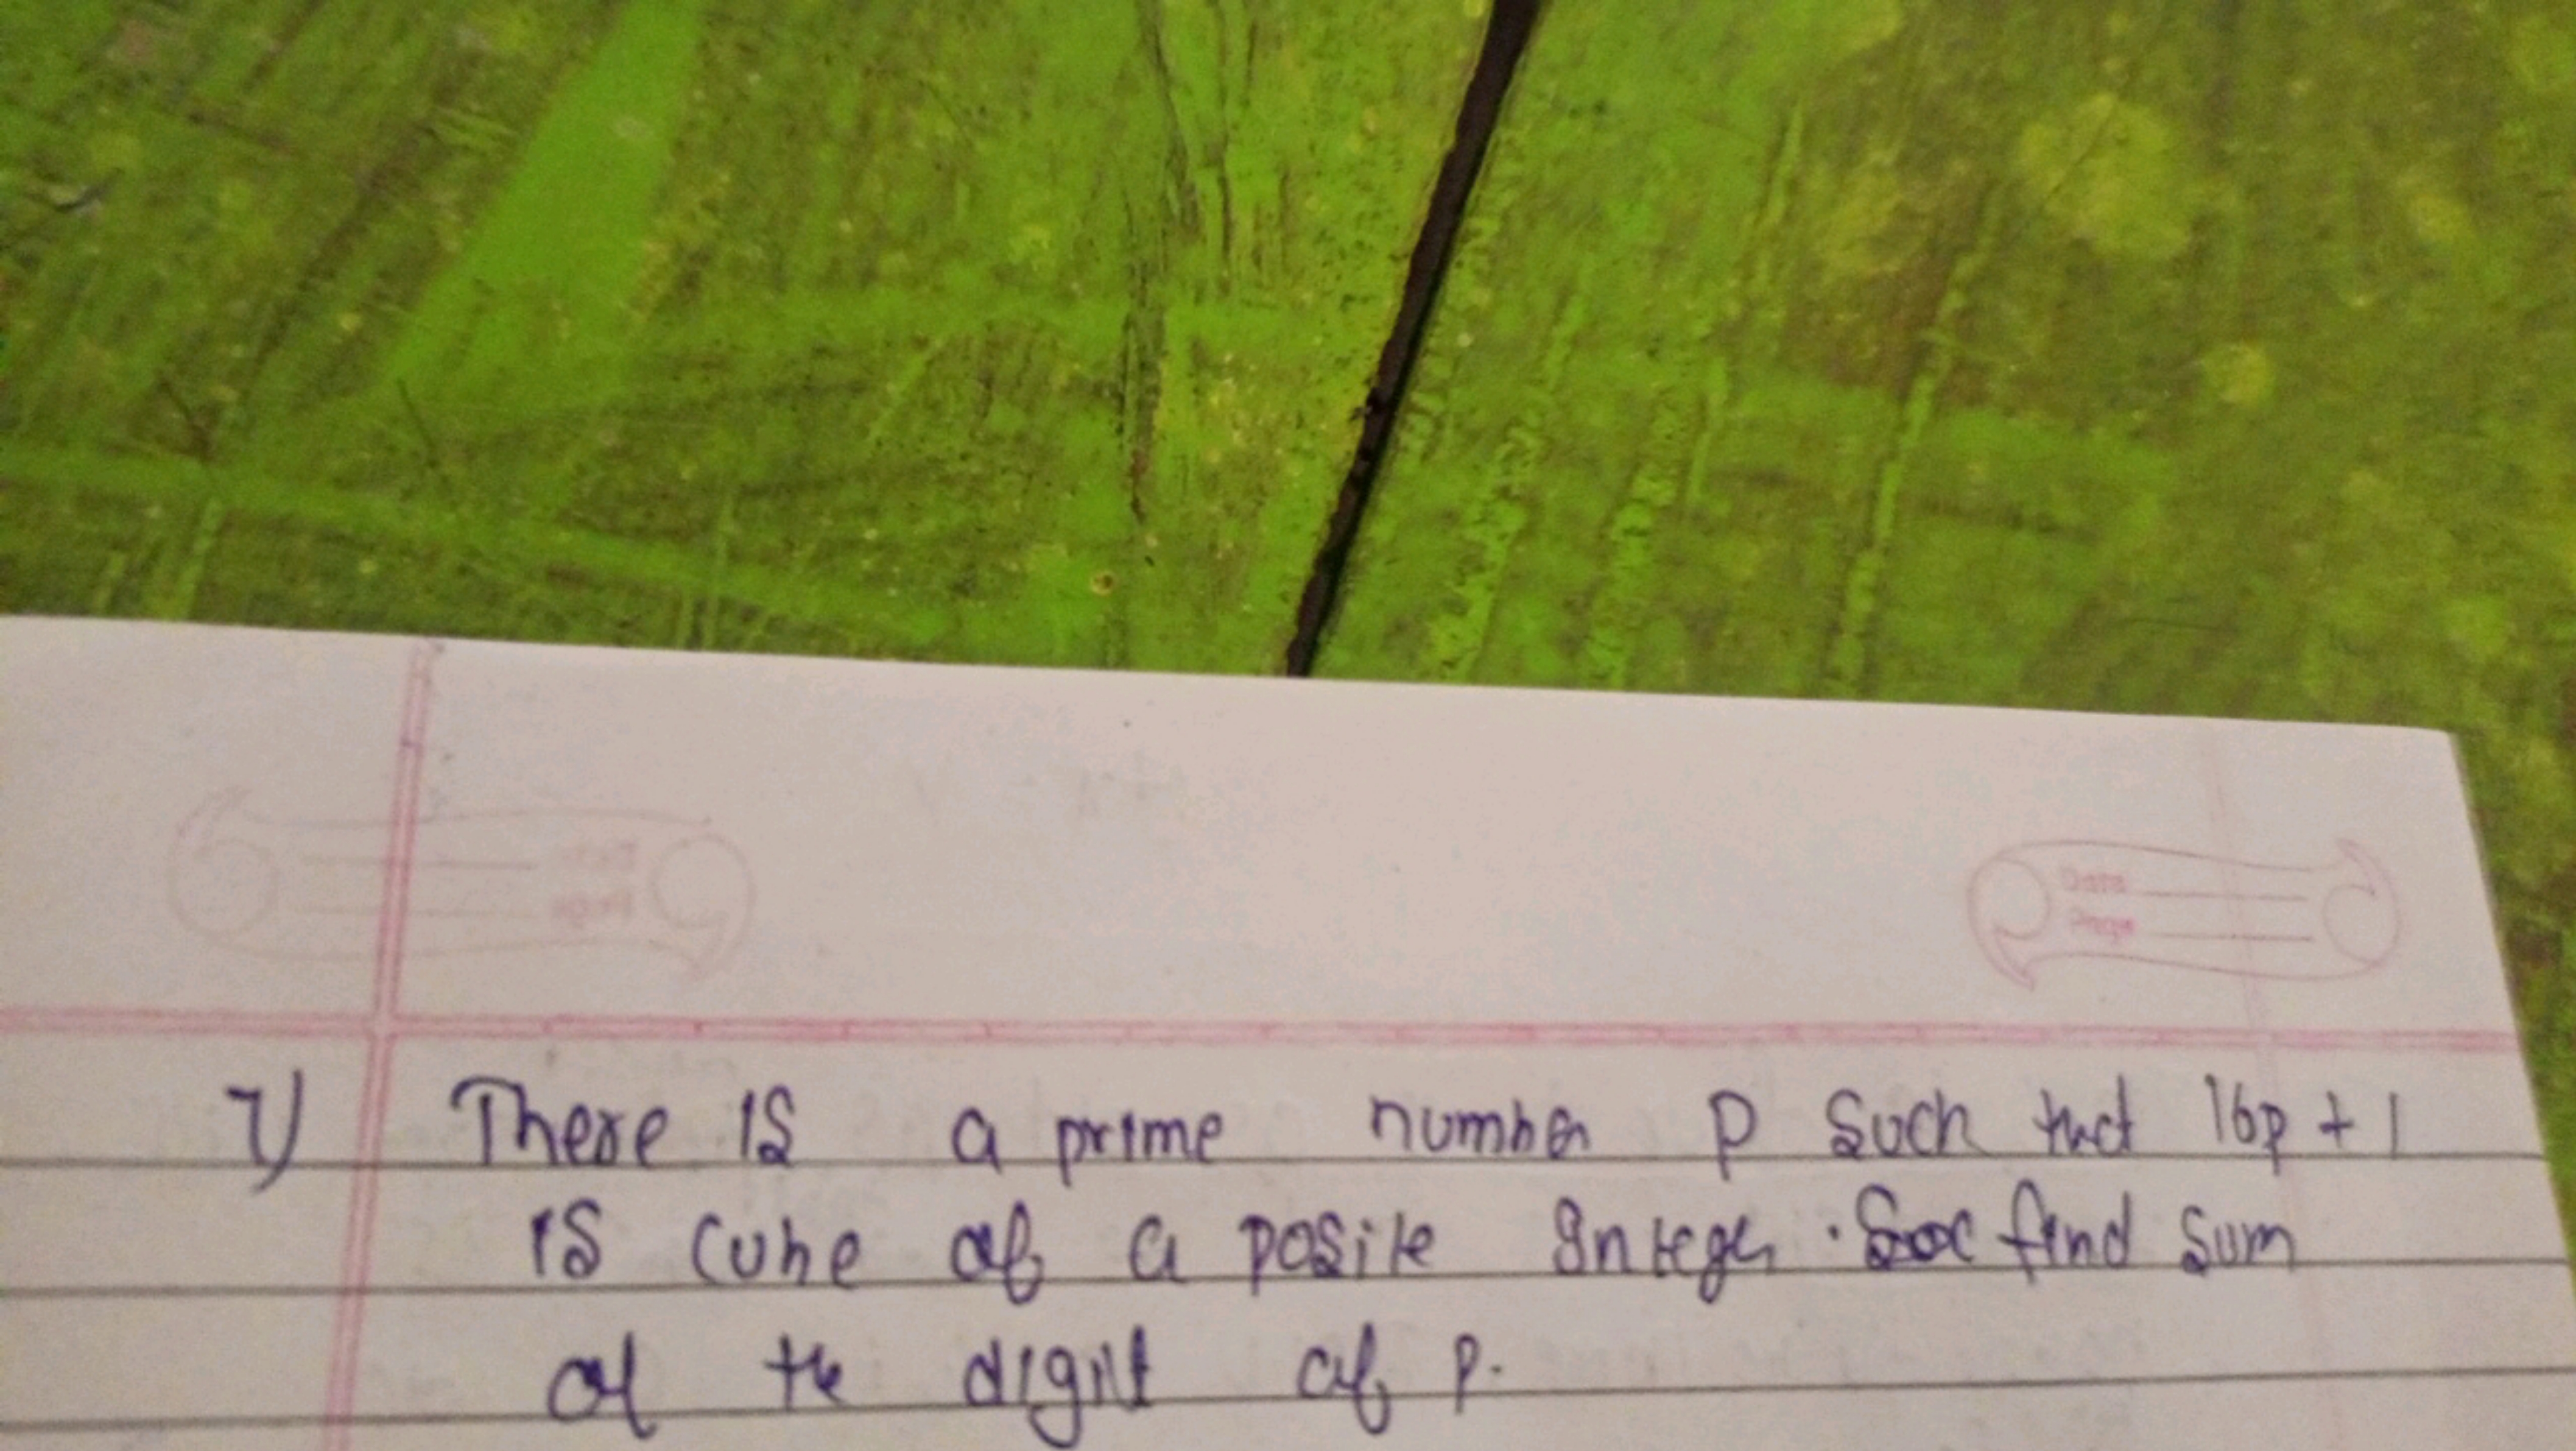 Date
Page
7) There is a prime number p such that 16p + 1
is cube of a positive Integer. find sum
of the digit of p.